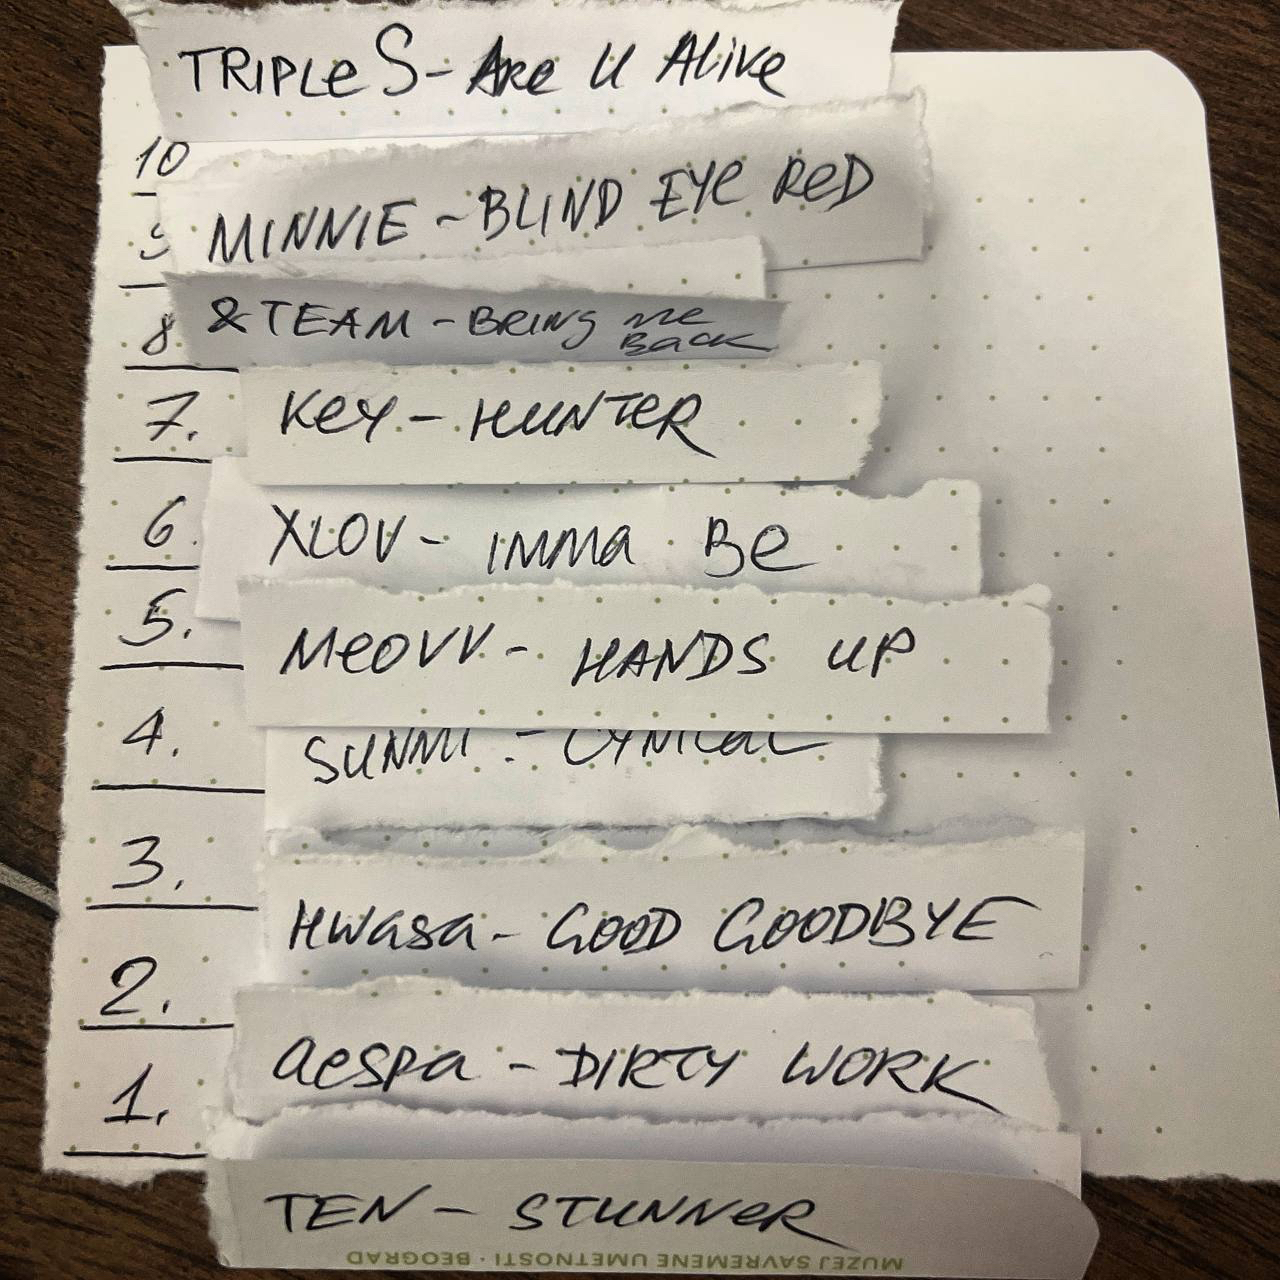 TRIPLE S - Are U Alive
10
MINNIE - BLIND EYE RED
9
& TEAM - BRING me
BACK
8
7. KEY - HUNTER
6. XLOV - IMMA BE
5. MEOVV - HANDS UP
4. SUNMI - CYNICAL
3.
HWASA - GOOD GOODBYE
2.
aespa - DIRTY WORK
1.
TEN - STUNNER
MUZEJ SAVREMENE UMETNOSTI · BEOGRAD